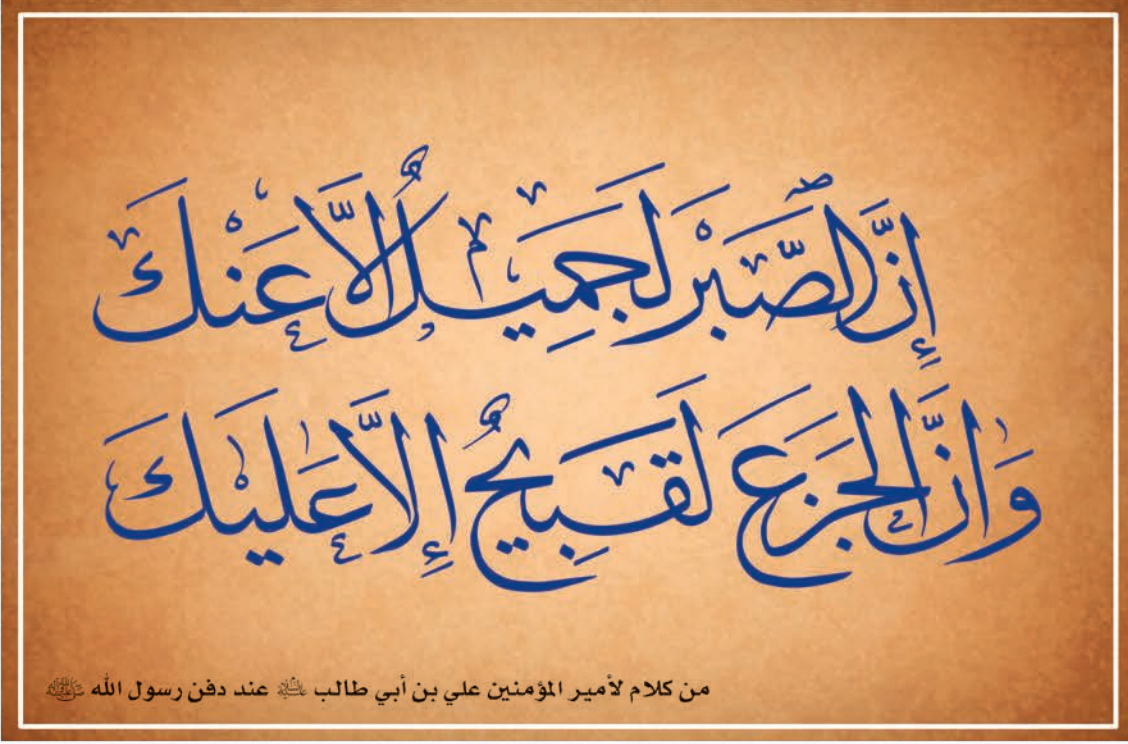 إِنَّ الصَّبْرَ لَجَمِيلٌ إلَّا عَنْكَ
وَانَّ الْجَزَعَ لَقَبِيحٌ إِلَّا عَلَيْكَ
من كلام لأمير المؤمنين علي بن أبي طالب عليه السلام عند دفن رسول الله ﷺ